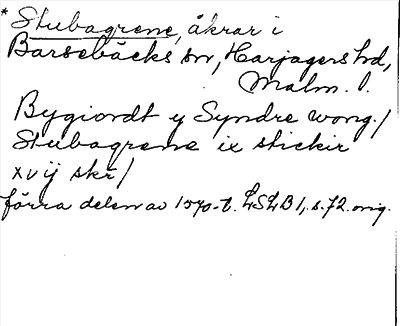 * Stubagrene, åkrar i
Barsebäcks sn, Harjagers hd,
Malm. l.
Bygiordt y Syndre wong./
Stubagrene ix stickir
xvij skr/
förra delen av 1570-t. LSLB 1, s. 72. orig.